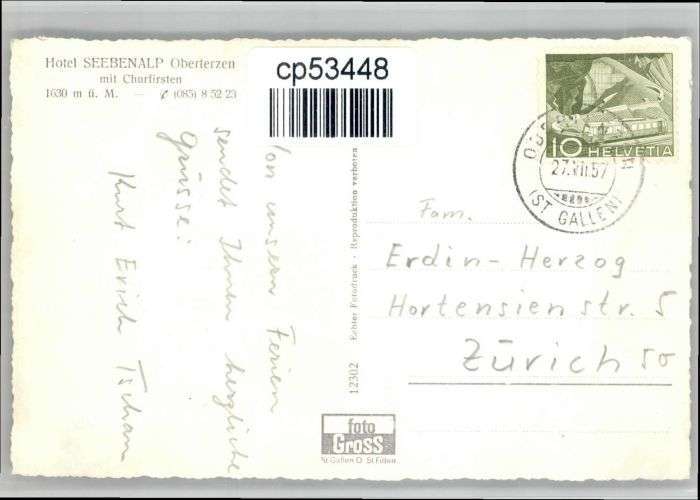 Hotel SEEBENALP Oberterzen
mit Churfirsten
1630 m ü. M. — ✆ (085) 8 52 23
cp53448
10 HELVETIA
27.VII.57
(ST GALLEN)
Von unsern Ferien
sendet Ihnen herzliche
Grüsse:
Kurt Erich Tschan
12302 Echter Fotodruck - Reproduktion verboten
Fam.
Erdin-Herzog
Hortensienstr. 5
Zürich 50
foto
GROSS
St. Gallen